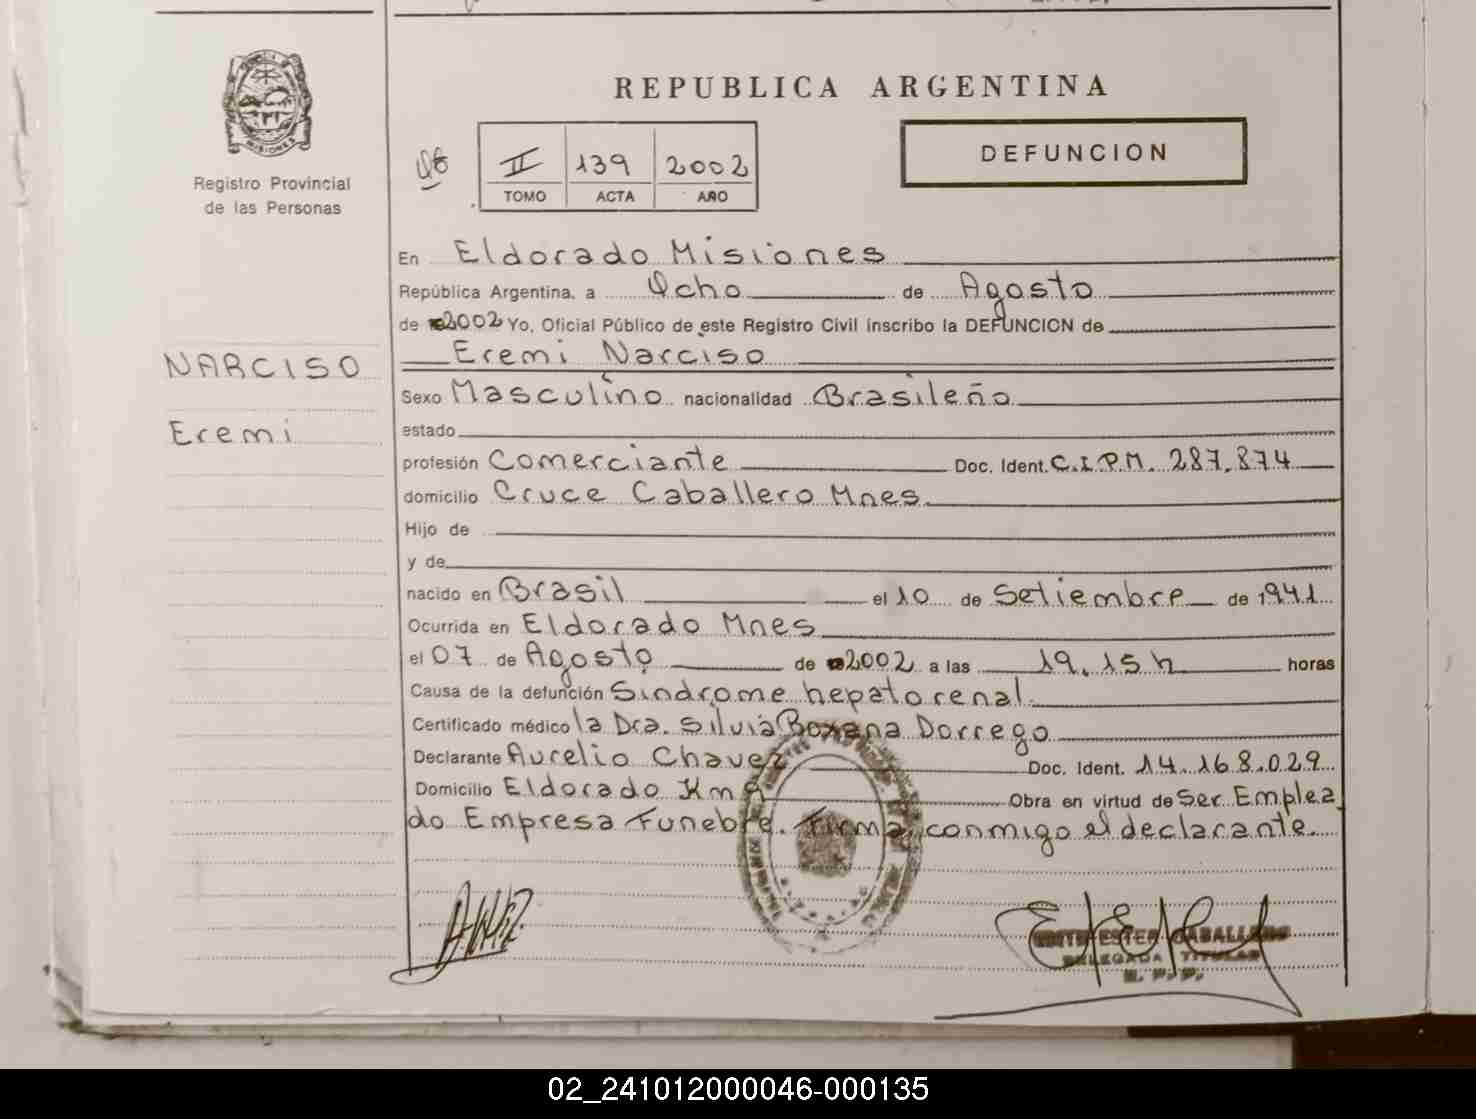 MISIONES
Registro Provincial
de las Personas
REPUBLICA ARGENTINA
II 139 2002
TOMO ACTA AÑO
DEFUNCION
En Eldorado Misiones
República Argentina, a Ocho de Agosto
de 2002 Yo, Oficial Público de este Registro Civil inscribo la DEFUNCION de
NARCISO
Eremi Narciso
Sexo Masculino nacionalidad Brasileño
Eremi
estado
profesión Comerciante Doc. Ident. C.I.P.M. 287.874
domicilio Cruce Caballero Mnes
Hijo de
y de
nacido en Brasil el 10 de Setiembre de 1941
Ocurrida en Eldorado Mnes
el 07 de Agosto de 2002 a las 19.15h horas
Causa de la defunción Sindrome hepatorenal
Certificado médico la Dra. Silvia Roxana Dorrego
Declarante Aurelio Chavez Doc. Ident. 14.168.029
Domicilio Eldorado Km 9 Obra en virtud de Ser Emplea
do Empresa Funebre. Firma conmigo el declarante.
EDITH ESTER CABALLERO
DELEGADA TITULAR
R. P. P.
02_241012000046-000135